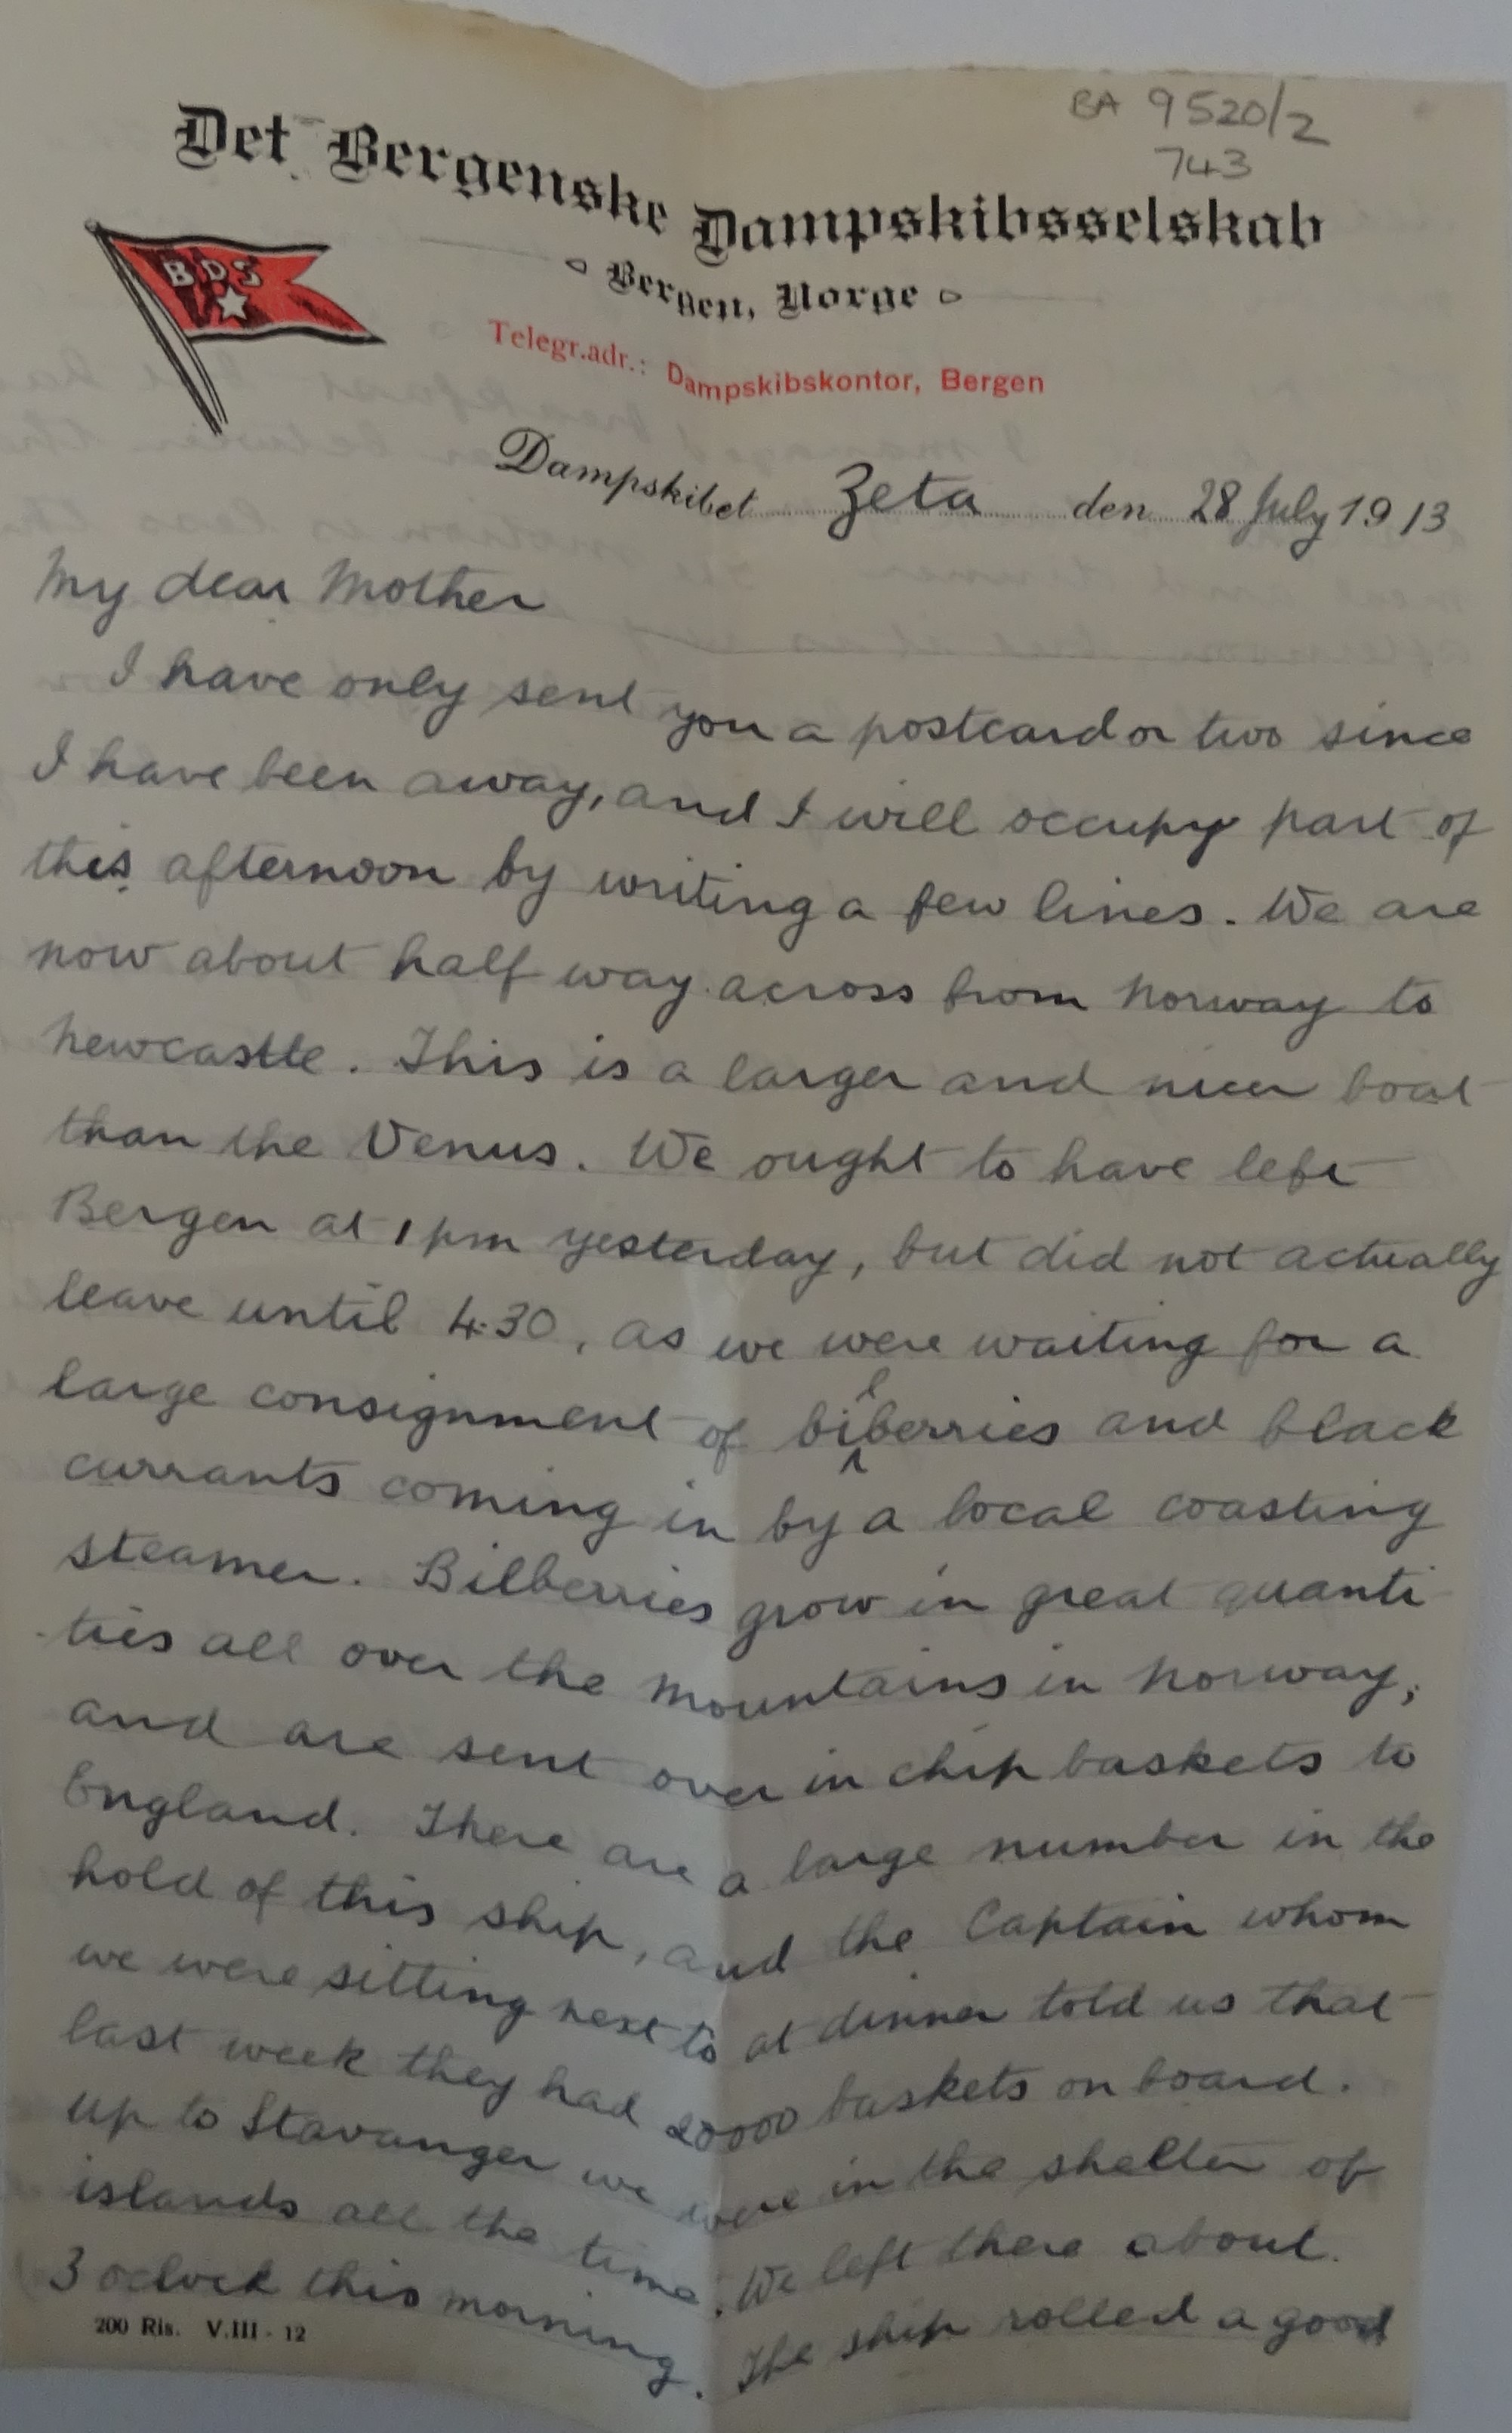 BA 9520/2
743
Det Bergenske Dampskibsselskab
Bergen, Norge
BDS
Telegr.adr.: Dampskibskontor, Bergen
Dampskibet Zeta den 28 July 1913
My dear Mother
I have only sent you a postcard or two since
I have been away, and I will occupy part of
this afternoon by writing a few lines. We are
now about half way across from Norway to
Newcastle. This is a larger and nicer boat
than the Venus. We ought to have left
Bergen at 1 pm yesterday, but did not actually
leave until 4.30, as we were waiting for a
large consignment of bilberries and black
currants coming in by a local coasting
steamer. Bilberries grow in great quanti
-ties all over the mountains in Norway,
and are sent over in chip baskets to
England. There are a large number in the
hold of this ship, and the Captain whom
we were sitting next to at dinner told us that
last week they had 20000 baskets on board.
Up to Stavanger we were in the shelter of
islands all the time. We left there about
3 oclock this morning. The ship rolled a good
200 Ris. V.III - 12